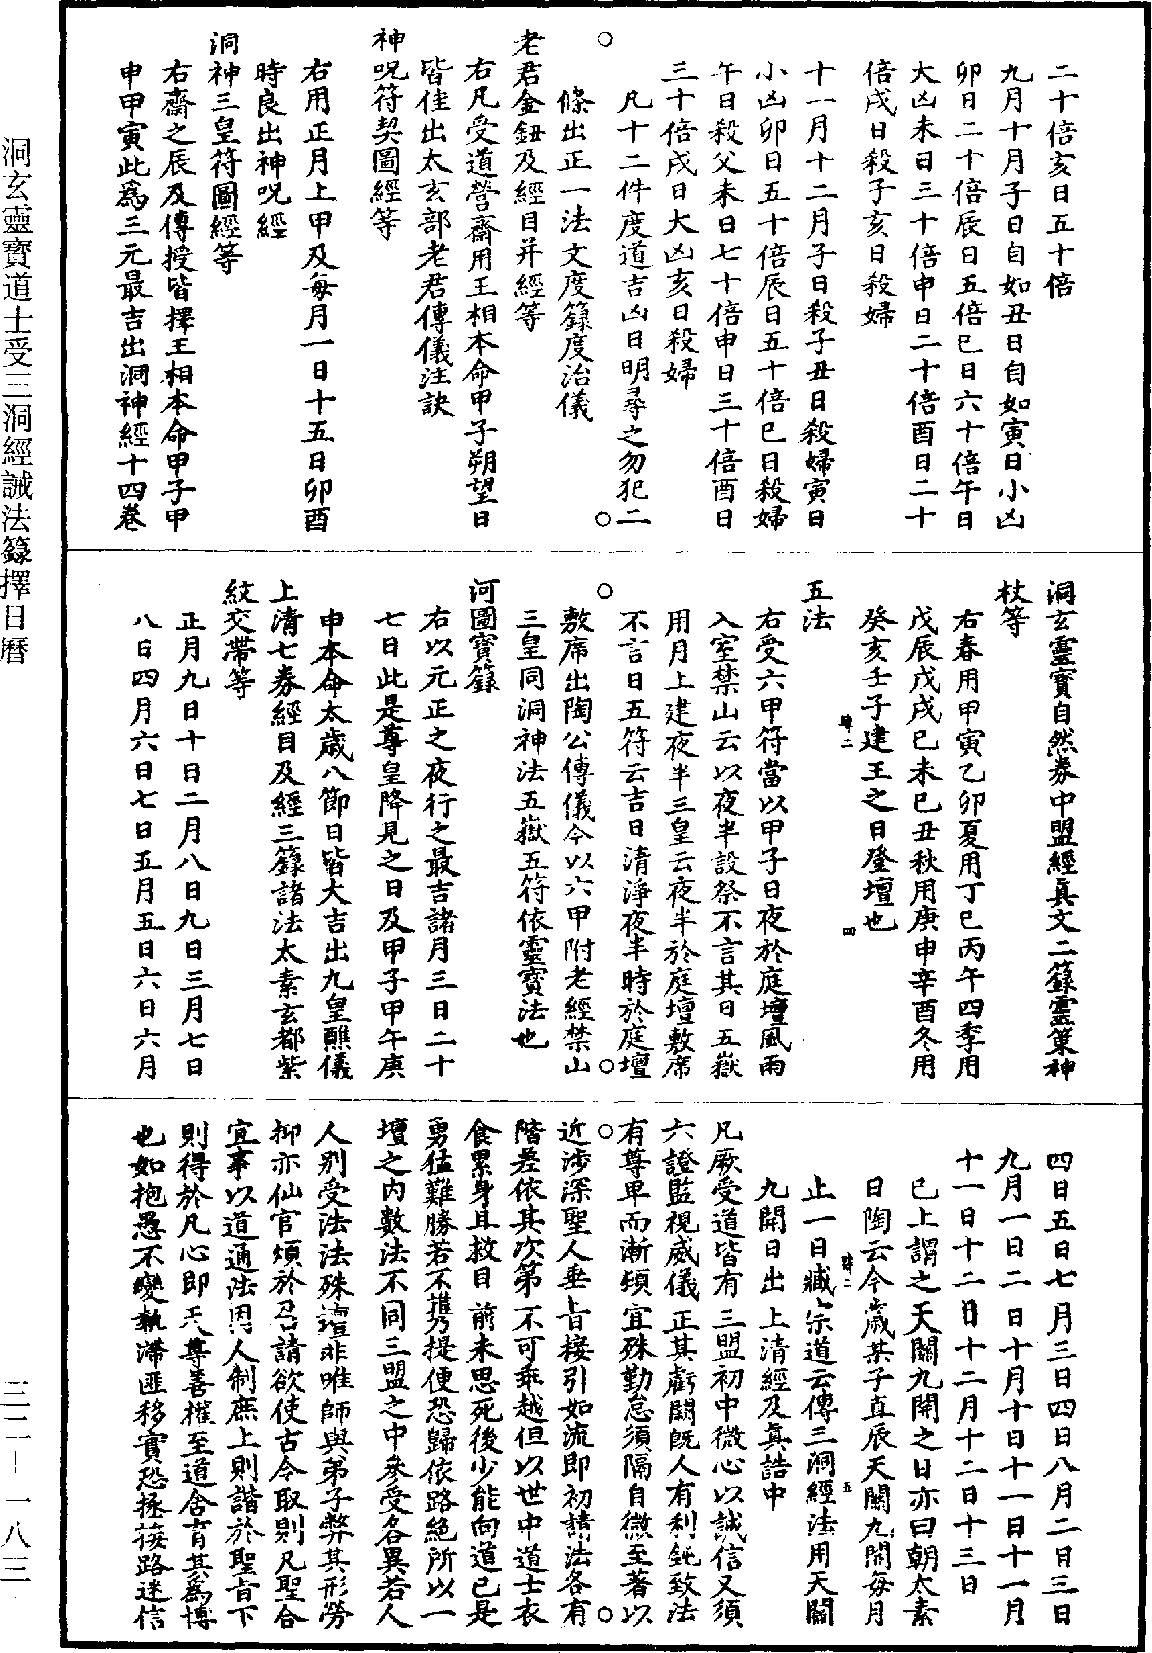 二十倍亥日五十倍
九月十月子日自如丑日自如寅日小凶
卯日二十倍辰日五倍巳日六十倍午日
大凶未日三十倍申日二十倍酉日二十
倍戌日殺子亥日殺婦
十一月十二月子日殺子丑日殺婦寅日
小凶卯日五十倍辰日五十倍巳日殺婦
午日殺父未日七十倍申日三十倍酉日
三十倍戌日大凶亥日殺婦
凡十二件度道吉凶日明尋之勿犯二
條出正一法文度籙度治儀
老君金鈕及經目并經等
右凡受道營齋用王相本命甲子朔望日
皆佳出太玄部老君傳儀注訣
神呪符契圖經等
右用正月上甲及每月一日十五日卯酉
時良出神呪經
洞神三皇符圖經等
右齋之辰及傳授皆擇王相本命甲子甲
申甲寅此爲三元最吉出洞神經十四卷
洞玄靈寶自然券中盟經真文二籙靈策神
杖等
右春用甲寅乙卯夏用丁巳丙午四季用
戊辰戊戌巳未巳丑秋用庚申辛酉冬用
癸亥壬子建王之日登壇也
二
四
五法
右受六甲符當以甲子日夜於庭壇風雨
入室禁山云以夜半設祭不言其日五嶽
用月上建夜半三皇云夜半於庭壇敷席
不言日五符云吉日清淨夜半時於庭壇
敷席出陶公傳儀今以六甲附老經禁山
三皇同洞神法五嶽五符依靈寶法也
河圖寶籙
右以元正之夜行之最吉諸月三日二十
七日此是尊皇降見之日及甲子甲午庚
申本命太歲八節日皆大吉出九皇醮儀
上清七券經目及經三籙諸法太素玄都紫
紋交帶等
正月九日十日二月八日九日三月七日
八日四月六日七日五月五日六日六月
四日五日七月三日四日八月二日三日
九月一日二日十月十日十一日十一月
十一日十二日十二月十二日十三日
已上謂之天關九開之日亦曰朝太素
日陶云今歲某子直辰天關九開每月
二
五
止一日臧宗道云傳三洞經法用天關
九開日出上清經及真誥中
凡厥受道皆有三盟初中微心以誠信又須
六證監視威儀正其虧闕既人有利鈍致法
有尊卑而漸頓宜殊勤怠須隔自微至著以
近涉深聖人垂旨接引如流即初諸法各有
階差依其次第不可乖越但以世中道士衣
食累身且救目前未思死後少能向道已是
勇猛難勝若不攜提便恐歸依路絕所以一
壇之内數法不同三盟之中參受名異若人
人別受法法殊壇非唯師與弟子弊其形勞
抑亦仙官煩於召請欲使古今取則凡聖合
宜事以道通法因人制庶上則諧於聖旨下
則得於凡心即天尊善權至道含育其爲博
也如抱愚不變執滯匪移實恐拯接路迷信
洞玄靈寶道士受三洞經誡法籙擇日曆
三二—一八三